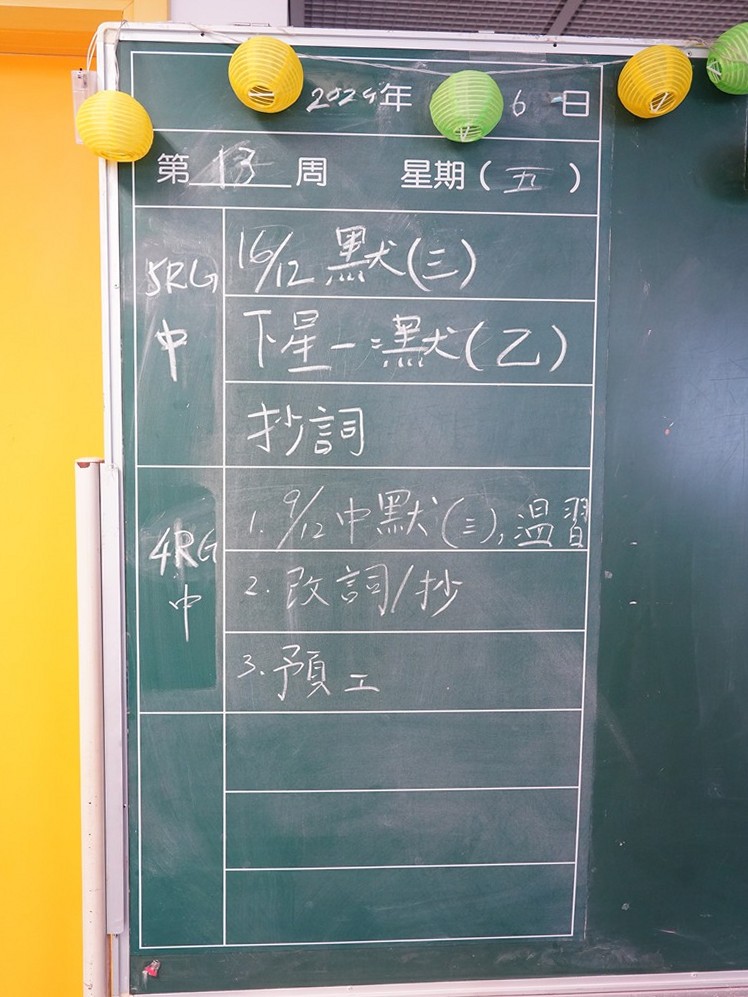 2024年 6日
第13周 星期(五)
5RG
中
16/12 默(三)
下星一:默(乙)
抄詞
4RG
中
1. 9/12 中默(三),溫習
2. 改詞/抄
3. 預工